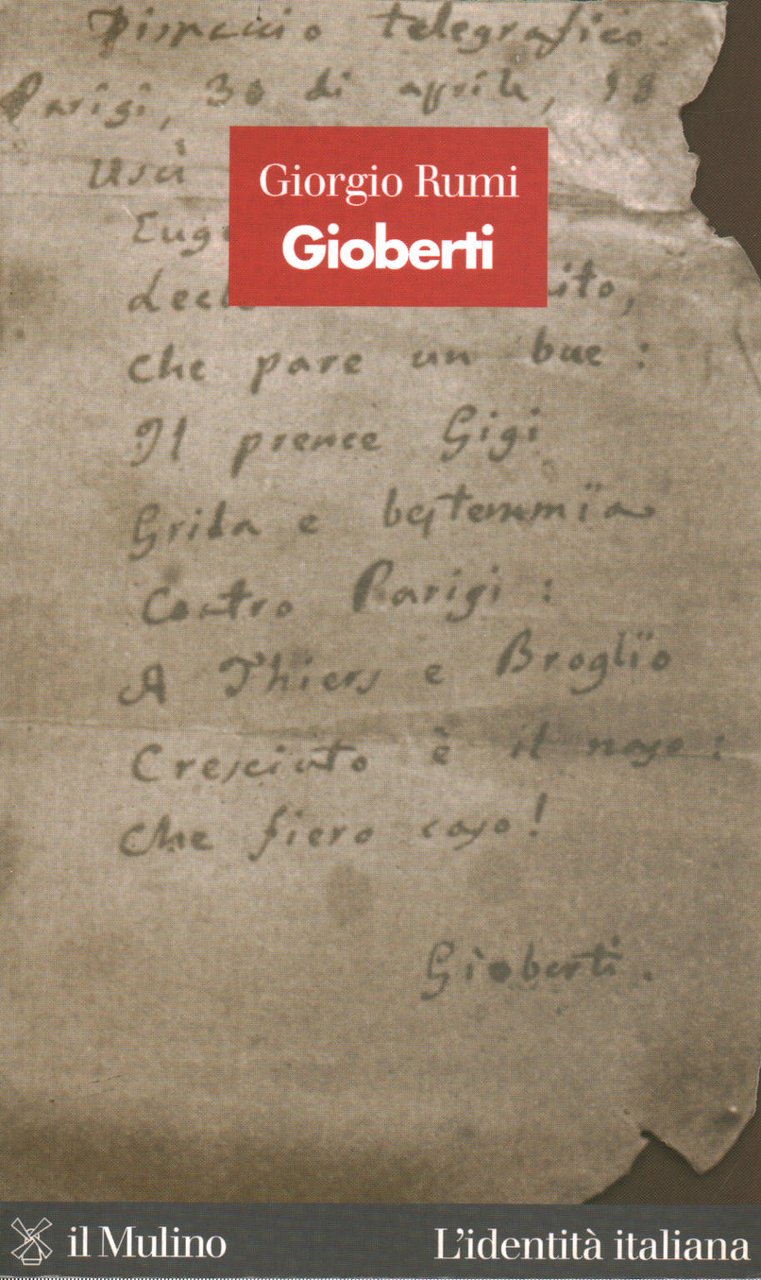 Dispaccio telegrafico.
Parigi, 30 di aprile, 18
Usu
Giorgio Rumi
Gioberti
Euge
ito,
che pare un bue:
Il prence Gigi
Grida e bestemmïa
Contro Parigi:
A Thiers e Broglïo
Cresciuto è il naso:
Che fiero caso!
Gioberti.
il Mulino
L'identità italiana